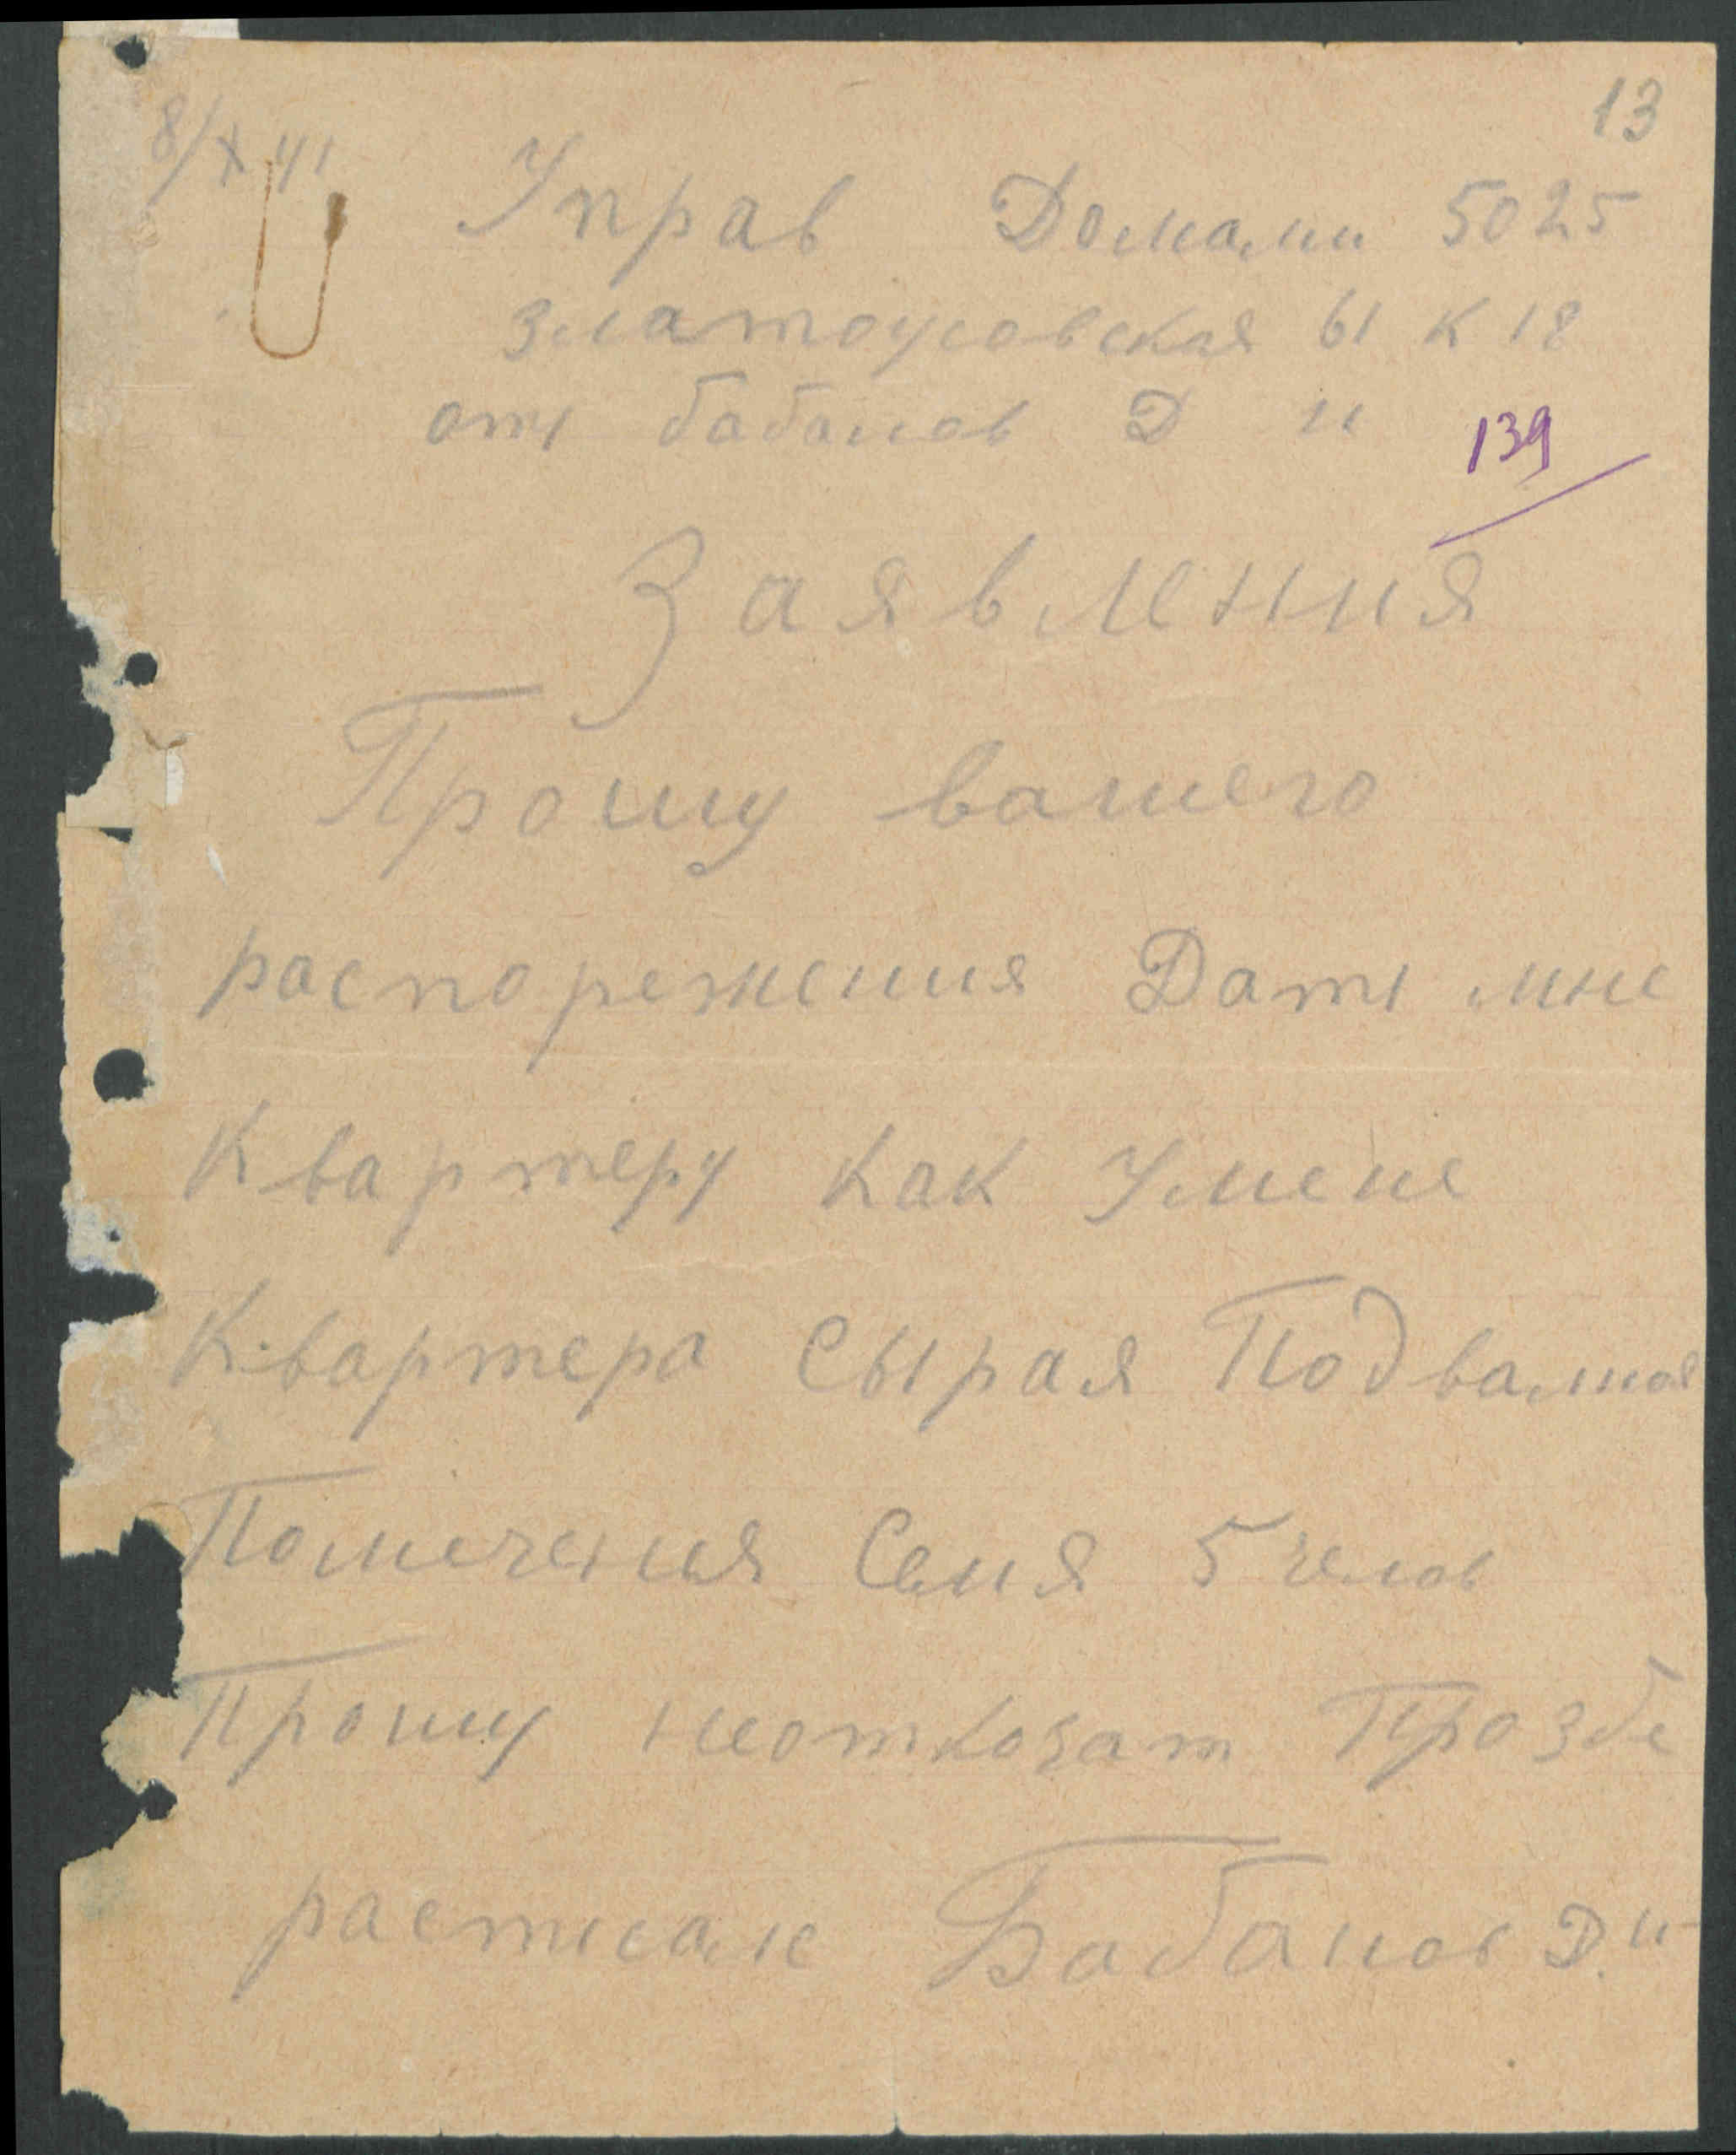 13
8/X 41
Управ Домами 5025
Златоусовская 61 К 18
от Бабанов Д И
139
Заявления
Прошу вашего
распорежения Дать мне
Квартеру как Умене
Квартера Сырая Подвалная
Помечения Семя 5 челов
Прошу неоткозат Прозбе
Бабанов Д.И